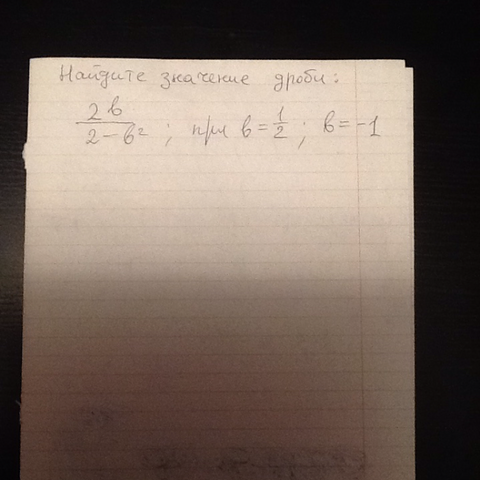 Найдите значение дроби:
2в/2-в²; при в=1/2; в=-1